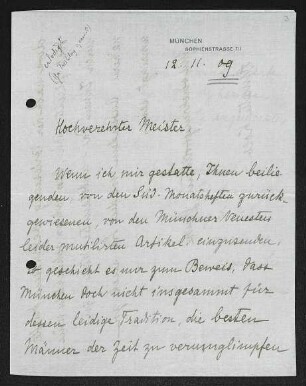 MÜNCHEN
SOPHIENSTRASSE
12 11. 09
Hochverehrter Meister,
Wenn ich mir gestatte, Ihnen beilie
genden, von den Süd. Monatsheften zurück-
gewiesenen, von den Münchner Neuesten
leider mutilirten Artikel, einzusenden,
so geschieht es nur zum Beweis, dass
München doch nicht insgesammt für
dessen leidige Tradition, die besten
Männer der Zeit zu verunglimpfen